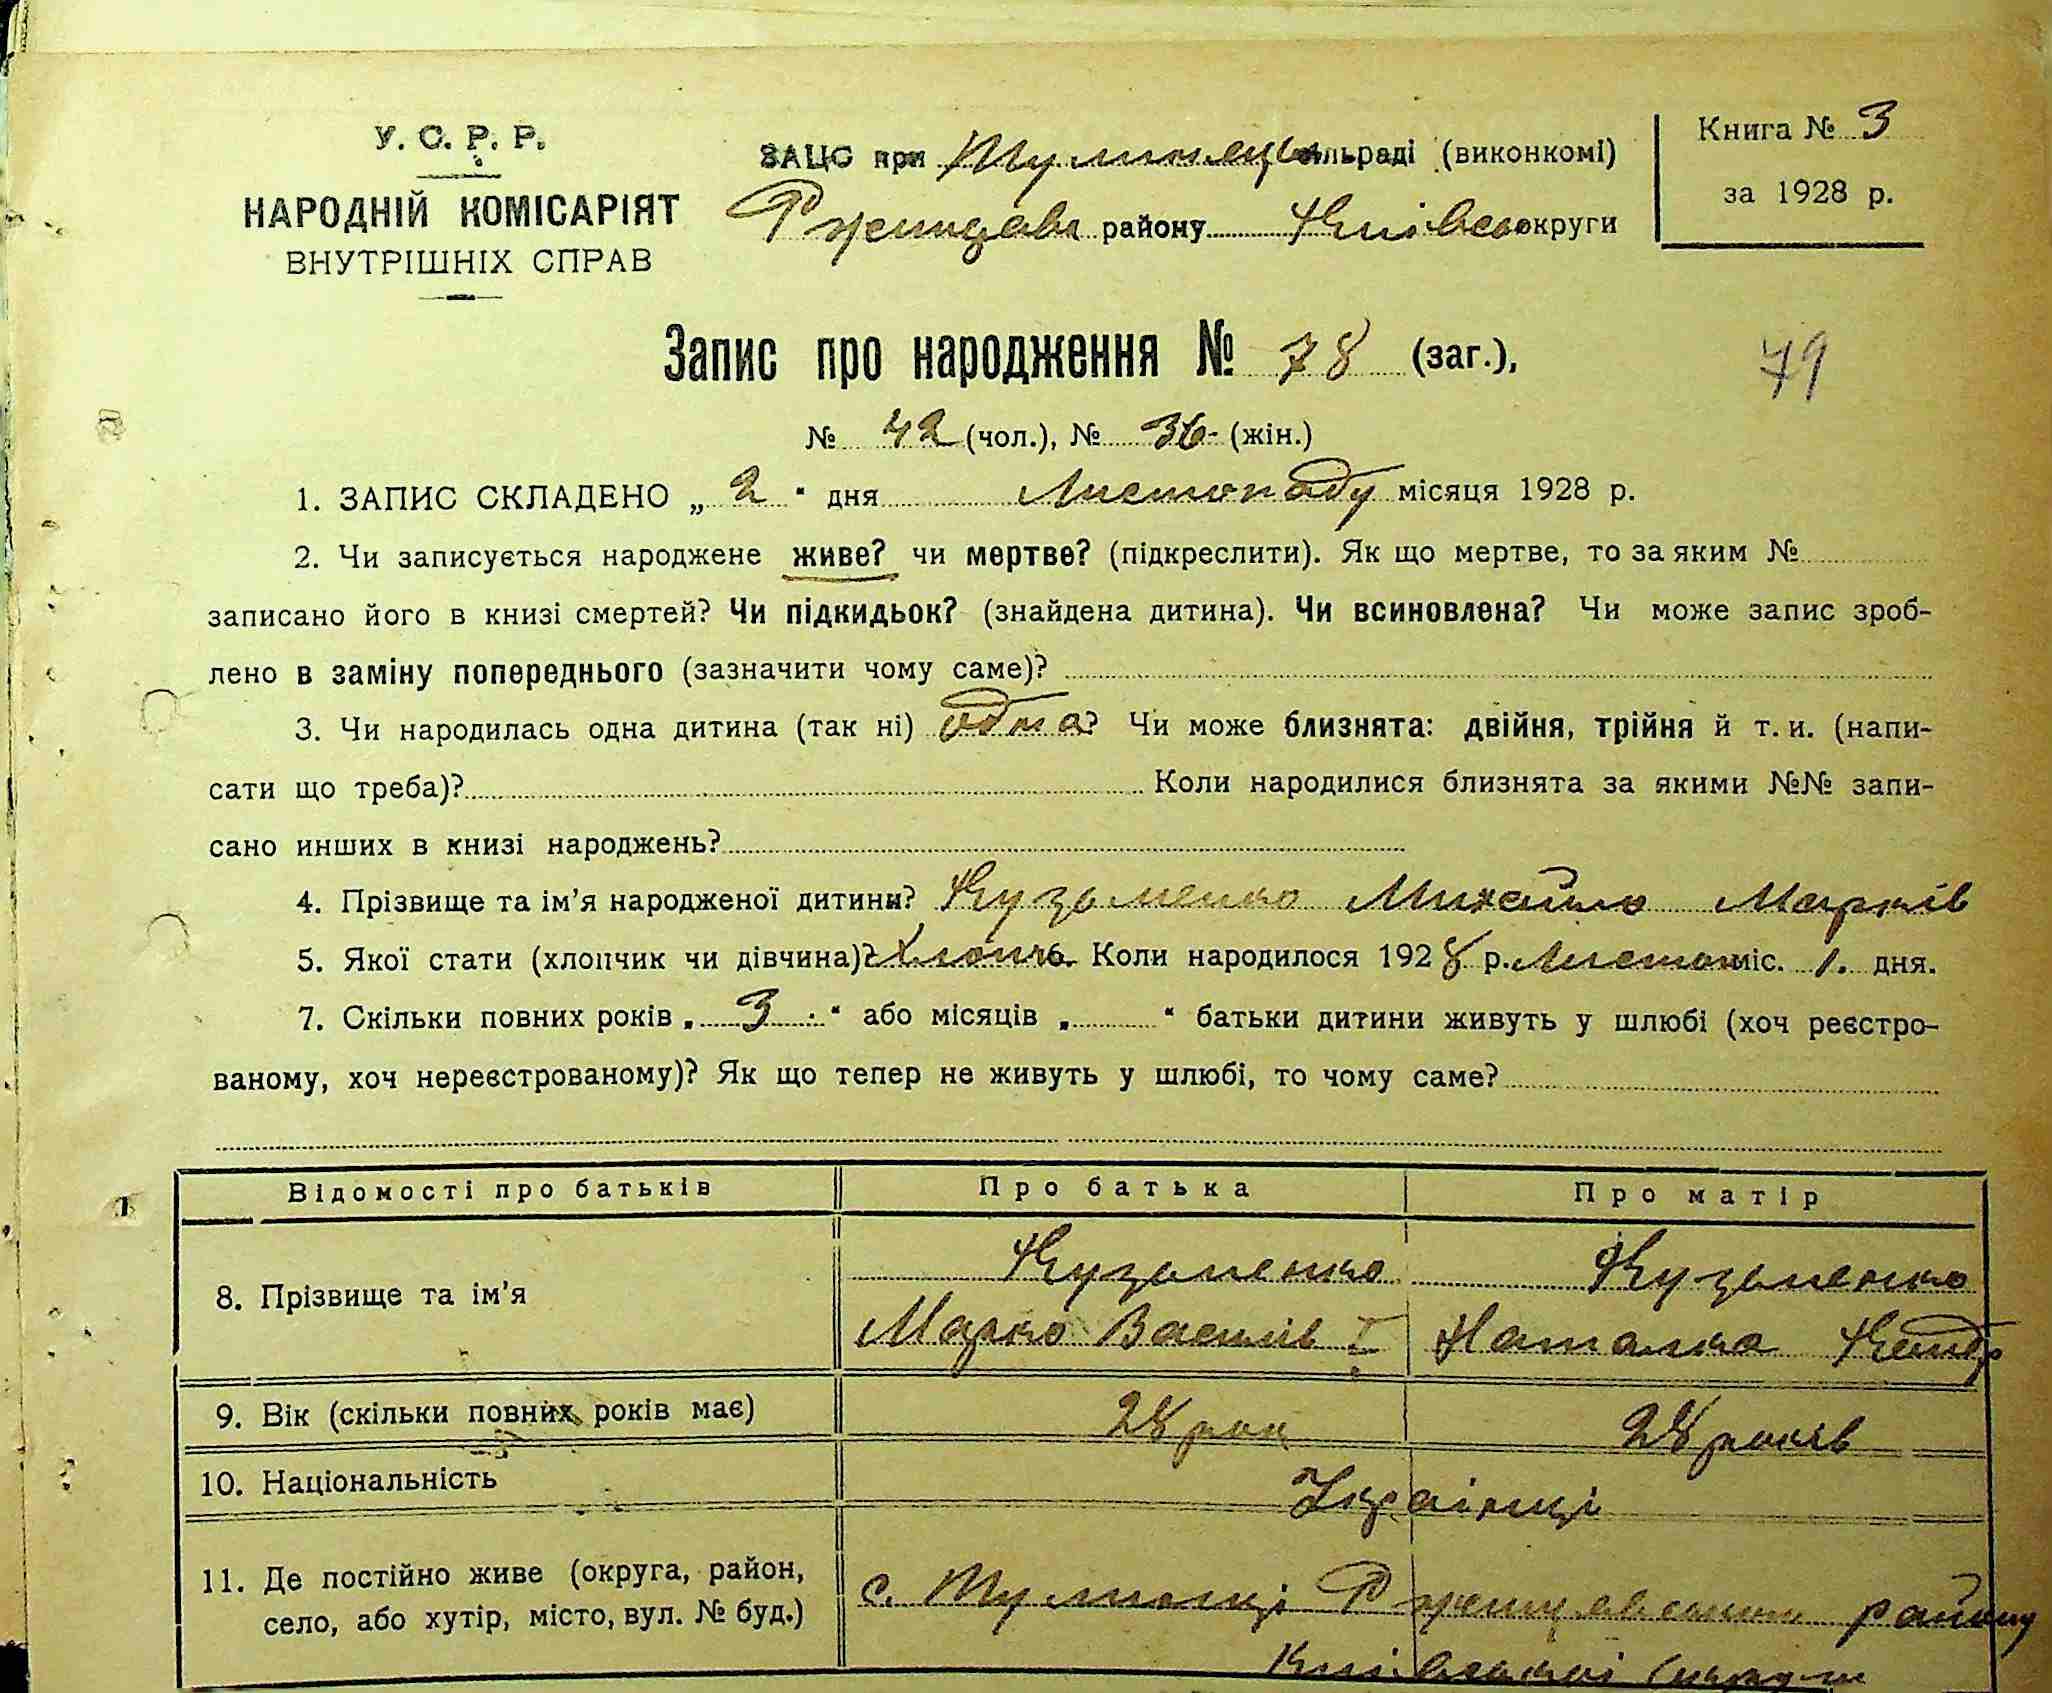 У. С. Р. Р.
НАРОДНІЙ КОМІСАРІЯТ
ВНУТРІШНІХ СПРАВ
ЗАЦС при Тулинець сільраді (виконкомі)
Ржищевс району Київсь округи
Книга № 3
за 1928 р.
Запис про народження № 78 (заг.),
79
№ 42 (чол.), № 36 (жін.)
1. ЗАПИС СКЛАДЕНО „ 2 " дня Листопаду місяця 1928 р.
2. Чи записується народжене живе? чи мертве? (підкреслити). Як що мертве, то за яким №
записано його в книзі смертей? Чи підкидьок? (знайдена дитина). Чи всиновлена? Чи може запис зроб-
лено в заміну попереднього (зазначити чому саме)?
3. Чи народилась одна дитина (так ні) одна? Чи може близнята: двійня, трійня й т. и. (напи-
сати що треба)? Коли народилися близнята за якими №№ запи-
сано инших в книзі народжень?
4. Прізвище та ім'я народженої дитини? Кузьменко Михайло Марків
5. Якої стати (хлопчик чи дівчина)? Хлопч. Коли народилося 1928 р. Листоп міс. 1. дня.
7. Скільки повних років „ 3 " або місяців „ " батьки дитини живуть у шлюбі (хоч реєстро-
ваному, хоч нереєстрованому)? Як що тепер не живуть у шлюбі, то чому саме?
Відомості про батьків Про батька Про матір
8. Прізвище та ім'я
Кузьменко Кузьменко
Марко Василів I Наталка
9. Вік (скільки повних років має) 28 рок 28 років
10. Національність Українці
11. Де постійно живе (округа, район,
село, або хутір, місто, вул. № буд.)
с. Тулинці Ржищевського району
Київської округи